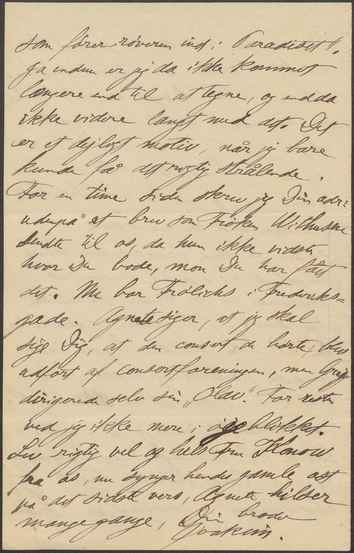 som fører røveren ind i Paradiset".
Ja endnu er jeg da ikke kommet
længere end til at tegne, og endda
ikke videre langt med det. Det
er et dejligt motiv, når jeg bare
kunde få det rigtig strålende.
For en time siden skrev jeg Din adr:
udenpå et brev som Frøken Wilhusen
sendte til os, da hun ikke vidste
hvor Du bode, mon Du har fået
det. Nu bor Frølichs i Frederiks=
gade. Agnete siger, at jeg skal
sige Dig, at den consert de hørte, blev
udført af Consertforeningen, men Grieg
dirigerede selv sin "Olav". For resten
ved jeg ikke mere i øjeblikket.
Lev rigtig vel og hils Fru Konow
fra os, nu synger hendes gamle
på det sidste vers, Agnete hilser
mange gange, Din broder
Joakim.